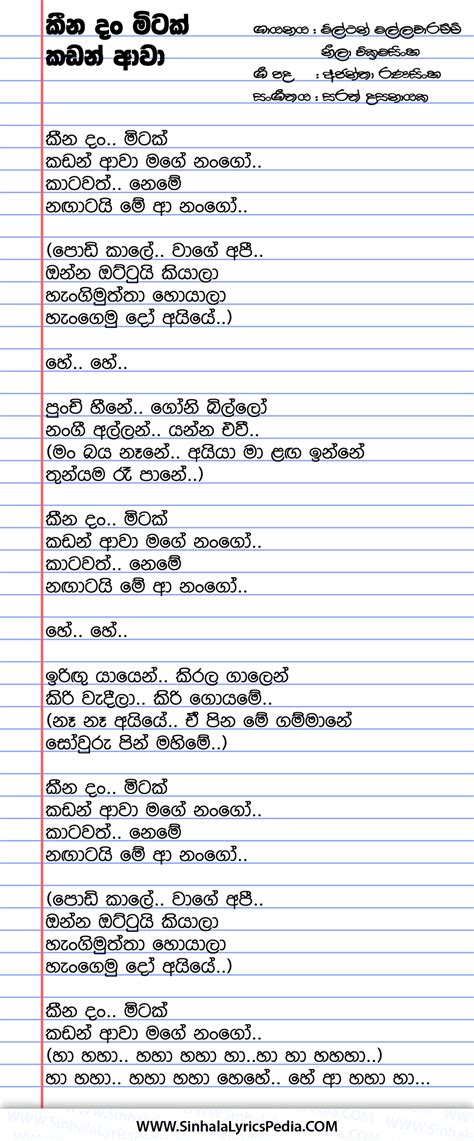 කීන දං මිටක්
කඩන් ආවා
ගායනය : මිල්ටන් මල්ලවාරච්චි
නීලා වික්‍රමසිංහ
ගී පද : අජන්තා රණසිංහ
සංගීතය : සරත් දසනායක
කීන දං.. මිටක්
කඩන් ආවා මගේ නංගෝ..
කාටවත්.. නෙමේ
නඟාටයි මේ ආ නංගෝ..
(පොඩි කාලේ.. වාගේ අපී..
ඔන්න ඔට්ටුයි කියාලා
හැංගිමුත්තා හොයාලා
හැංගෙමු දෝ අයියේ..)
හේ.. හේ..
පුංචි හීනේ.. ගෝනි බිල්ලෝ
නංගී අල්ලන්.. යන්න එවී..
(මං බය නෑනේ.. අයියා මා ළඟ ඉන්නේ
තුන්යම රෑ පානේ..)
කීන දං.. මිටක්
කඩන් ආවා මගේ නංගෝ..
කාටවත්.. නෙමේ
නඟාටයි මේ ආ නංගෝ..
හේ.. හේ..
ඉරිඟු යායෙන්.. කිරල ගාලෙන්
කිරි වැදීලා.. කිරි ගොයමේ..
(නෑ නෑ අයියේ.. ඒ පින මේ ගම්මානේ
සෝවුරු පින් මහිමේ..)
කීන දං.. මිටක්
කඩන් ආවා මගේ නංගෝ..
කාටවත්.. නෙමේ
නඟාටයි මේ ආ නංගෝ..
(පොඩි කාලේ.. වාගේ අපී..
ඔන්න ඔට්ටුයි කියාලා
හැංගිමුත්තා හොයාලා
හැංගෙමු දෝ අයියේ..)
කීන දං.. මිටක්
කඩන් ආවා මගේ නංගෝ..
(හා හහා.. හහා හහා හා..හා හා හහහා..)
හා හහා.. හහා හහා හෙහේ.. හේ ආ හහා හා...
www.SinhalaLyricsPedia.COM